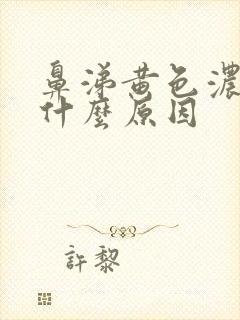 鼻涕黄色濃
什麼原因
許黎